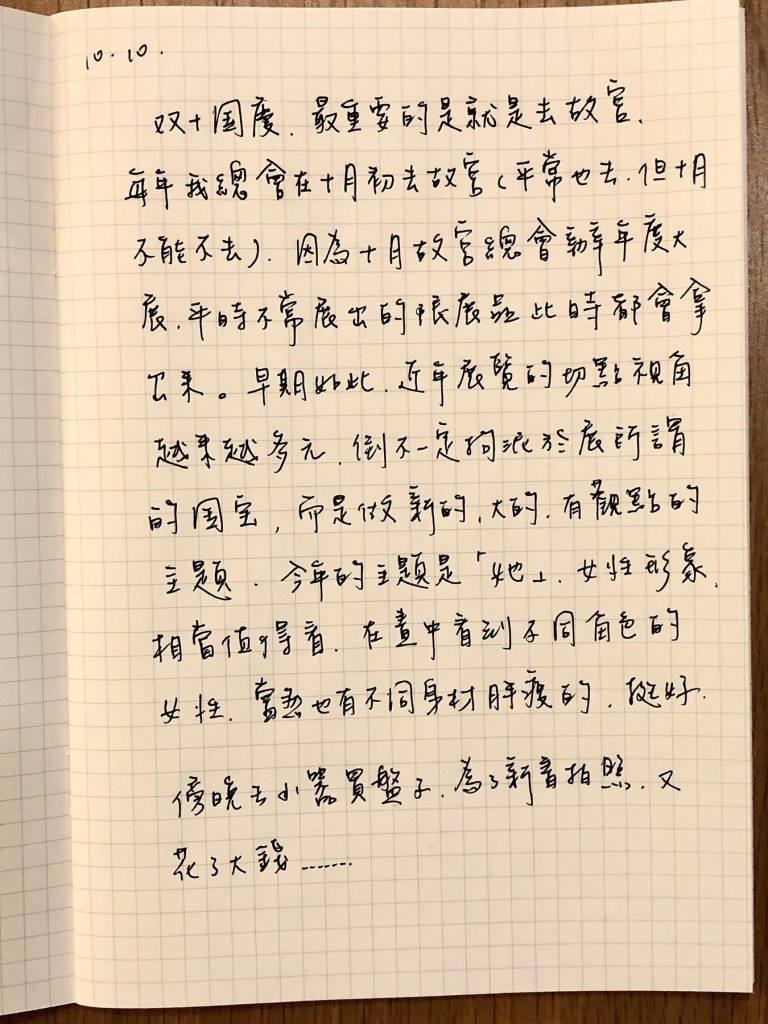 10.10.
双十国慶、最重要的是就是去故宮、
每年我總會在十月初去故宮(平常也去.但十月
不能不去).因為十月故宮總會勤辛年度大
展.平時不常展出的限展品此時都會拿
出来。早期如此.近年展覽的切點視角
越来越多元.倒不一定拘泥於展所謂
的国宝,而是做新的、大的.有觀點的
主題.今年的主題是「她」、女性形象.
相當值得看.在畫中看到不同角色的
女性.當然也有不同身材胖瘦的.挺好.
傍晚去小器買盤子.為了新書拍照.又
花了大錢……